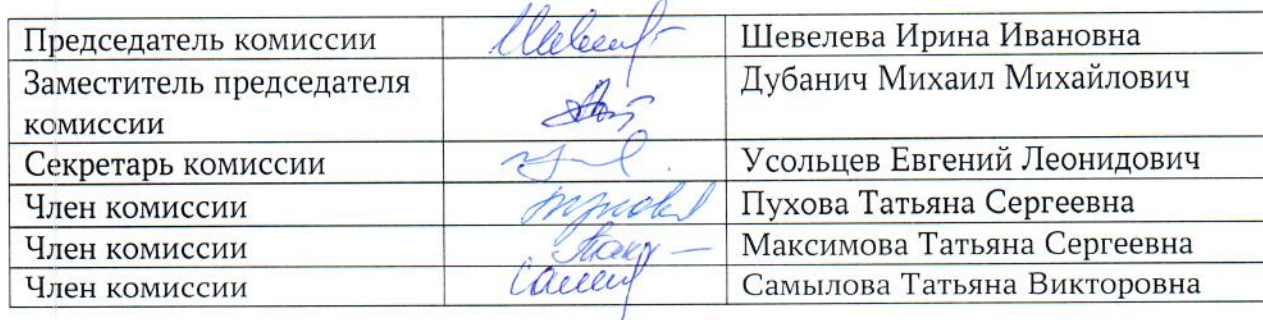 Председатель комиссии Шевелева Ирина Ивановна
Заместитель председателя Дубанич Михаил Михайлович
комиссии
Секретарь комиссии Усольцев Евгений Леонидович
Член комиссии Пухова Татьяна Сергеевна
Член комиссии Максимова Татьяна Сергеевна
Член комиссии Самылова Татьяна Викторовна